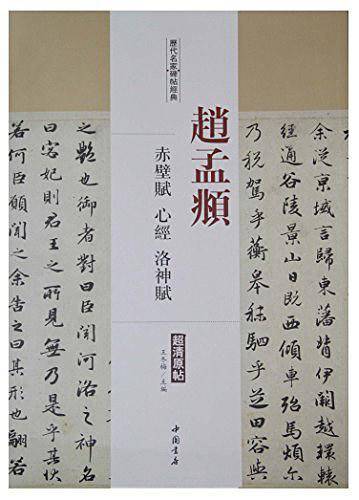 歷代名家碑帖經典
趙孟頫
赤壁賦 心經 洛神賦
超清原帖
王冬梅/主編
中國書店
余從京域言歸東藩背伊闕越轘轅
經通谷陵景山日既西傾車殆馬煩爾
乃稅駕乎蘅皋秣駟乎芝田容與
之艷也御者對曰臣聞河洛之神
曰宓妃則君王之所見無乃是乎其狀
若何臣願聞之余告之曰其形也